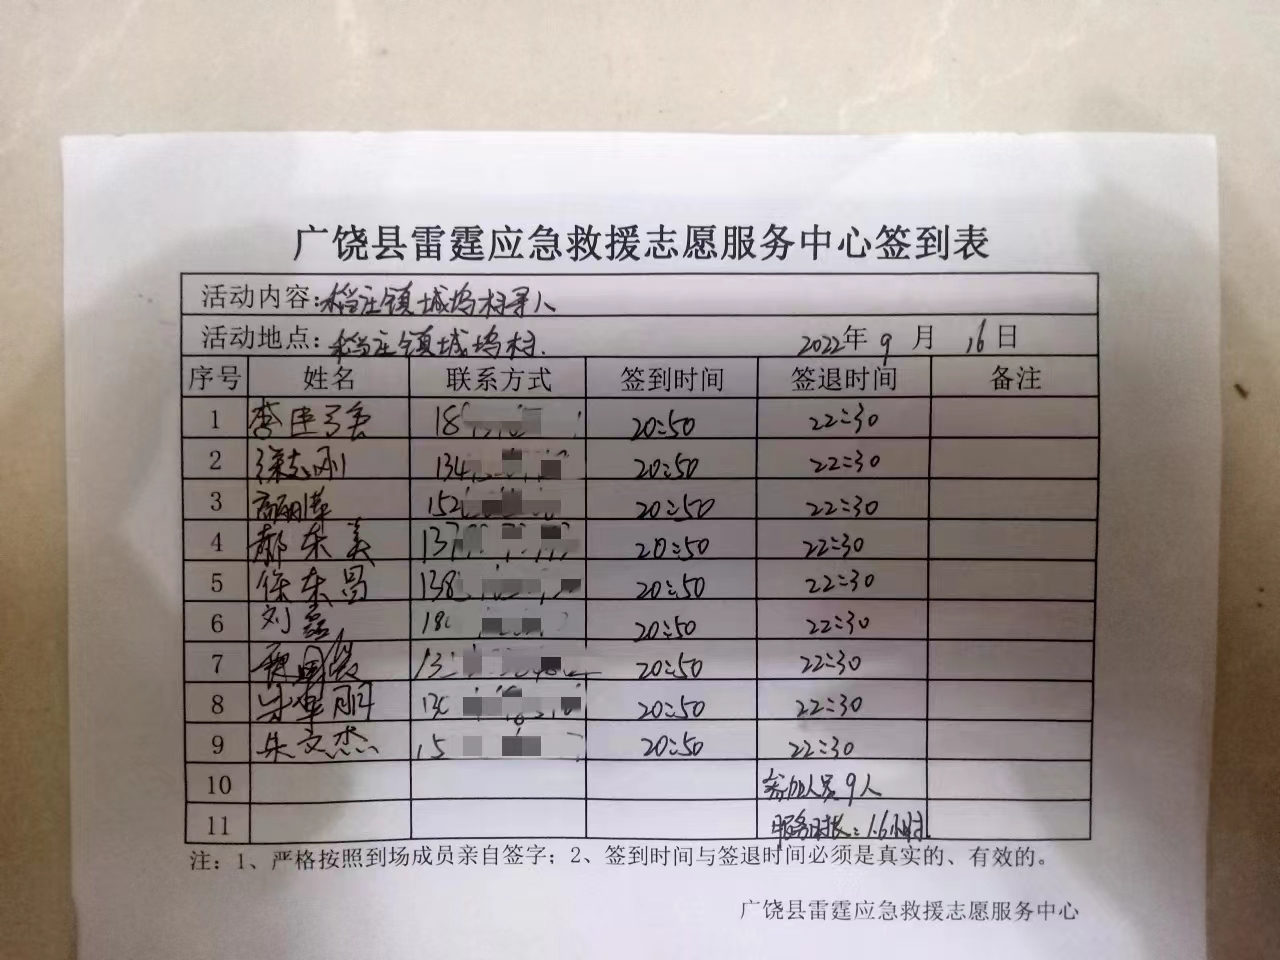 广饶县雷霆应急救援志愿服务中心签到表
活动内容:稻庄镇城坞村寻人
活动地点:稻庄镇城坞村. 2022年9月16日
序号 姓名 联系方式 签到时间 签退时间 备注
1 李建 18 20:50 22:30
2 徐志刚 134 20:50 22:30
3 152 20:50 22:30
4 郝东美 137 20:50 22:30
5 徐东昌 138 20:50 22:30
6 刘磊 18 20:50 22:30
7 13 20:50 22:30
8 13 20:50 22:30
9 朱文杰 15 20:50 22:30
10 参加人员9人
11 服务时长:1.6小时.
注:1、严格按照到场成员亲自签字;2、签到时间与签退时间必须是真实的、有效的。
广饶县雷霆应急救援志愿服务中心